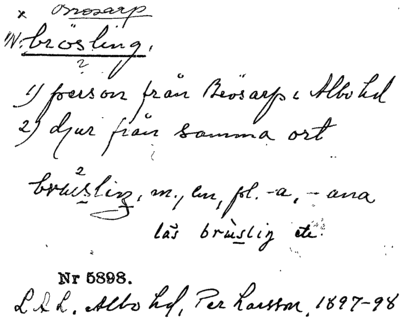 x Brösarp
N. brösling,
2
1) person från Brösarp i Albo hd
2) djur från samma ort
2
brùsling, m., en, pl. -a, -ana
läs brùsling etc.
Nr 5898.
L.A.L. Albo hd, Per Larsson, 1897-98